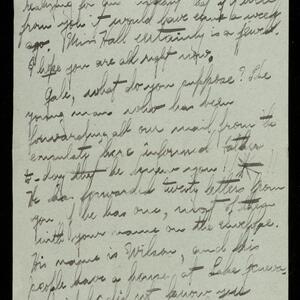 from you it would have been a week
ago. Miss Hall certainly is a
I hope you are all right now.
Gale, what do you suppose? The
young man who has been
forwarding all our mail from the
consulate here informed father
to-day that he knows you! 
He has forwarded twenty letters from
you, if he has one, most of them
with your name on the envelope.
His name is Wilson, and his
people have a house at Lake Geneva
not know you